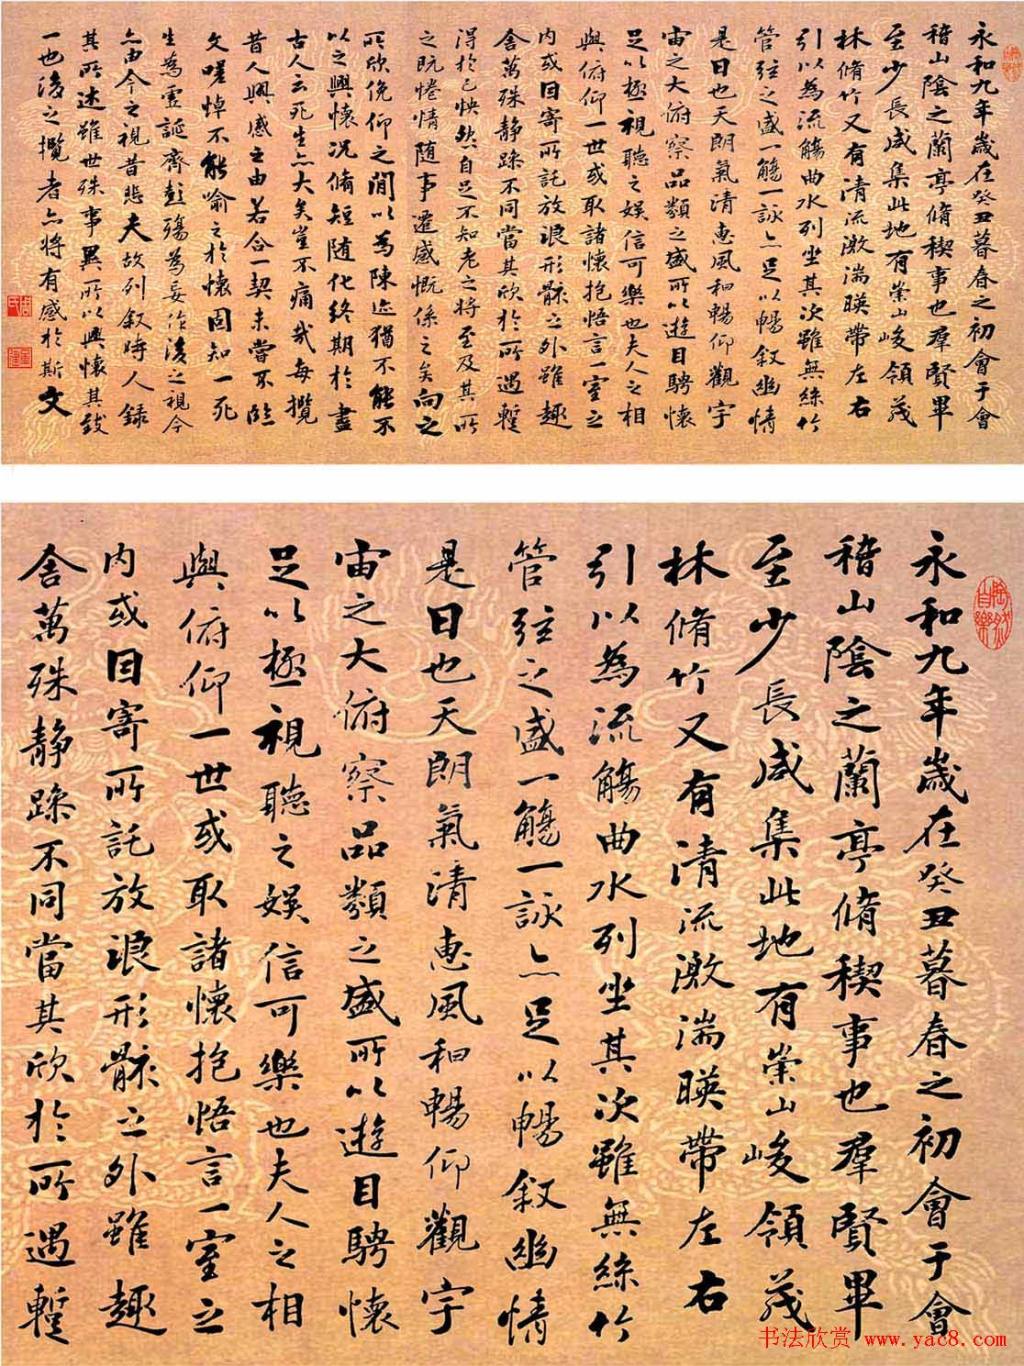 永和九年歲在癸丑暮春之初會于會
稽山陰之蘭亭脩稧事也羣賢畢
至少長咸集此地有崇山峻領茂
林脩竹又有清流激湍暎帶左右
引以為流觴曲水列坐其次雖無絲竹
管弦之盛一觴一詠亦足以暢叙幽情
是日也天朗氣清惠風和暢仰觀宇
宙之大俯察品類之盛所以遊目騁懷
足以極視聽之娛信可樂也夫人之相
與俯仰一世或取諸懷抱悟言一室之
內或因寄所託放浪形骸之外雖趣
舍萬殊静躁不同當其欣於所遇暫
得於己怏然自足不知老之將至及其所
之既惓情隨事遷感慨係之矣向之
所欣俛仰之閒以為陳迹猶不能不
以之興懷況脩短隨化終期於盡
古人云死生亦大矣豈不痛哉每攬
昔人興感之由若合一契未嘗不臨
文嗟悼不能喻之於懷固知一死
生為虛誕齊彭殤為妄作後之視今
亦由今之視昔悲夫故列叙時人錄
其所述雖世殊事異所以興懷其致
一也後之攬者亦將有感於斯文
陶然自樂
永和九年歲在癸丑暮春之初會于會
稽山陰之蘭亭脩稧事也羣賢畢
至少長咸集此地有崇山峻領茂
林脩竹又有清流激湍暎帶左右
引以為流觴曲水列坐其次雖無絲竹
管弦之盛一觴一詠亦足以暢叙幽情
是日也天朗氣清惠風和暢仰觀宇
宙之大俯察品類之盛所以遊目騁懷
足以極視聽之娛信可樂也夫人之相
與俯仰一世或取諸懷抱悟言一室之
內或因寄所託放浪形骸之外雖趣
舍萬殊静躁不同當其欣於所遇暫
书法欣赏 www.yac8.com